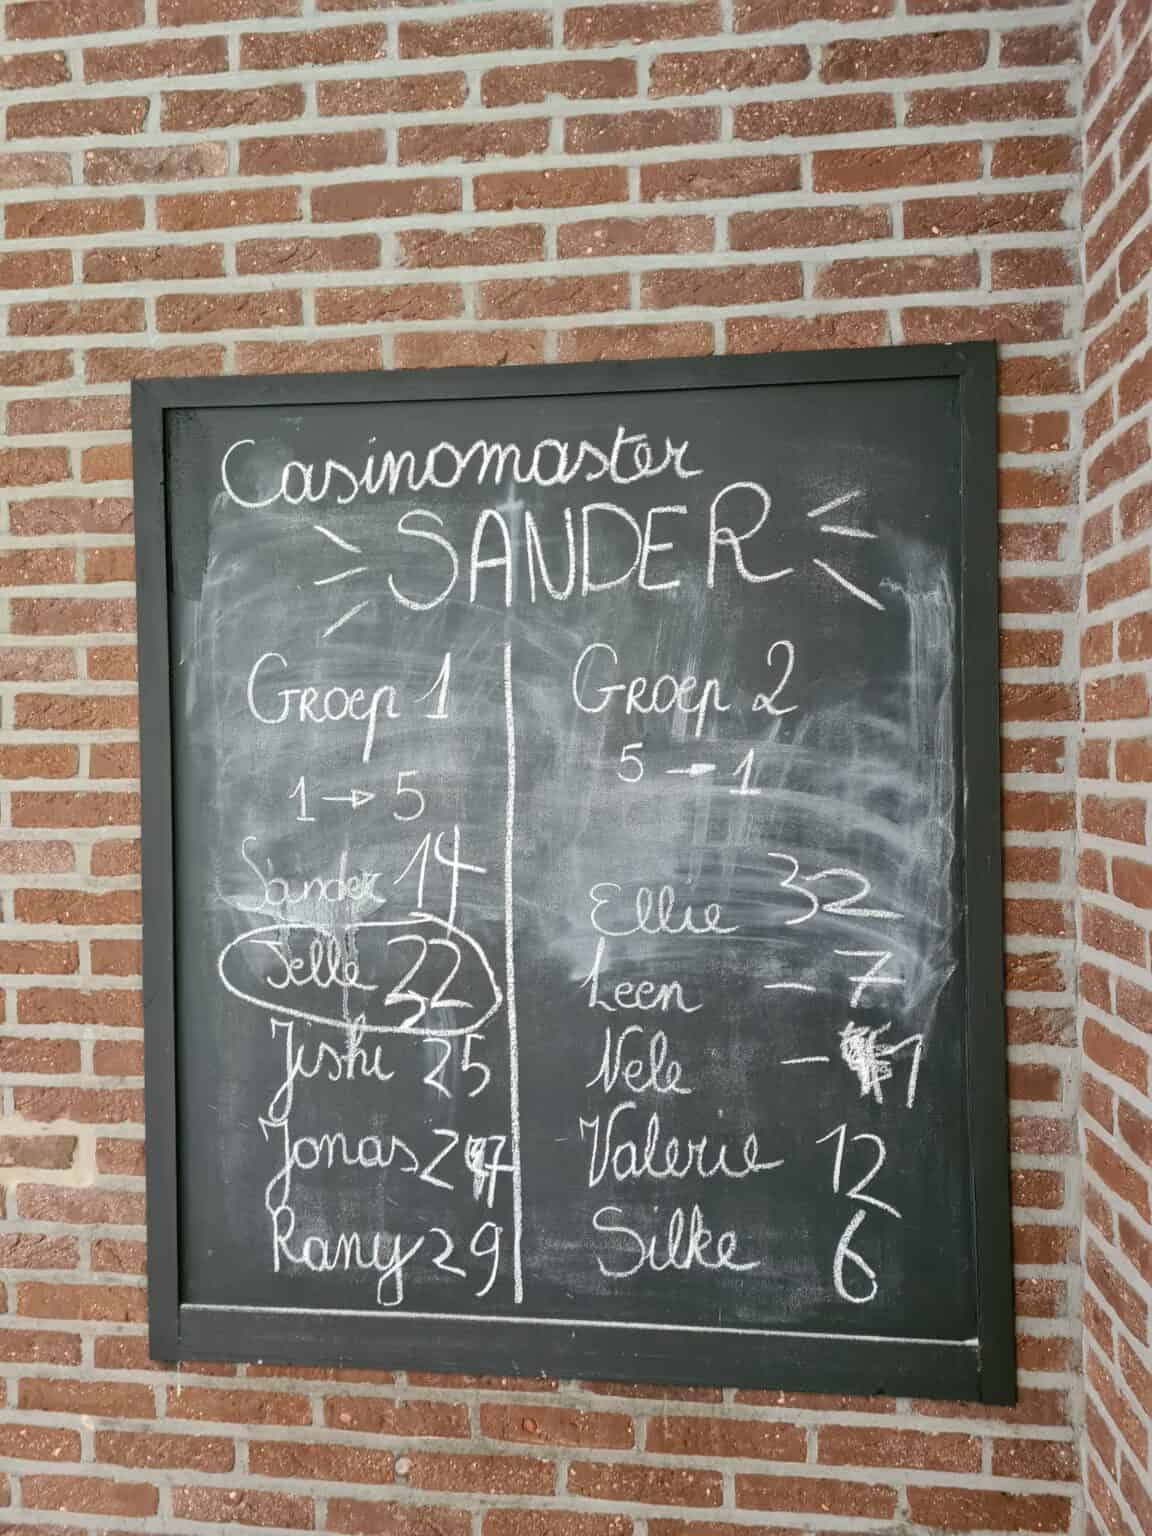 Casinomaster
SANDER
Groep 1
1 → 5
Sander 14
Jelle 22
Jiski 25
Jonas 27
Rany 29
Groep 2
5 → 1
Ellie 32
Leen - 7
Nele - 1
Valerie 12
Silke 6